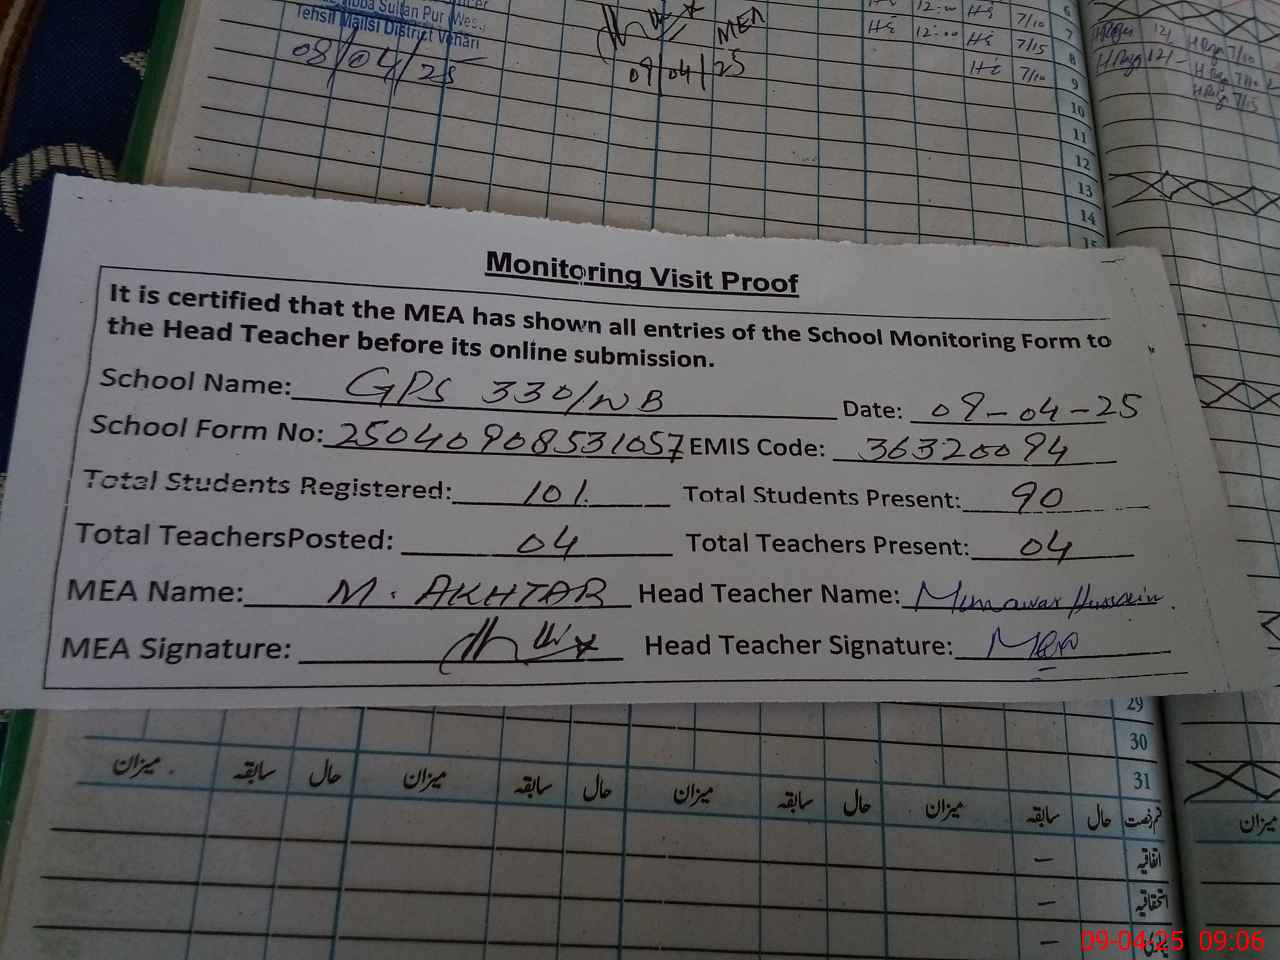 Tehsil Mailsi District Vehari
08/04/25
MEA
09/04/25
12:00 7/10 7
12:00 7/15 8
7/10 9
10
11
12
13
14
15
Monitoring Visit Proof
It is certified that the MEA has shown all entries of the School Monitoring Form to
the Head Teacher before its online submission.
School Name: GPS 330/WB Date: 09-04-25
School Form No: 25040908531057 EMIS Code: 36320094
Total Students Registered: 101 Total Students Present: 90
Total TeachersPosted: 04 Total Teachers Present: 04
MEA Name: M. AKHTAR Head Teacher Name: Munawar Hussain
MEA Signature: Head Teacher Signature:
29
30
31
قسم رخصت حال سابقہ میزان حال سابقہ میزان حال سابقہ میزان حال سابقہ میزان
میزان
اتفاقیہ
استحقاقیہ
09-04-25 09:06